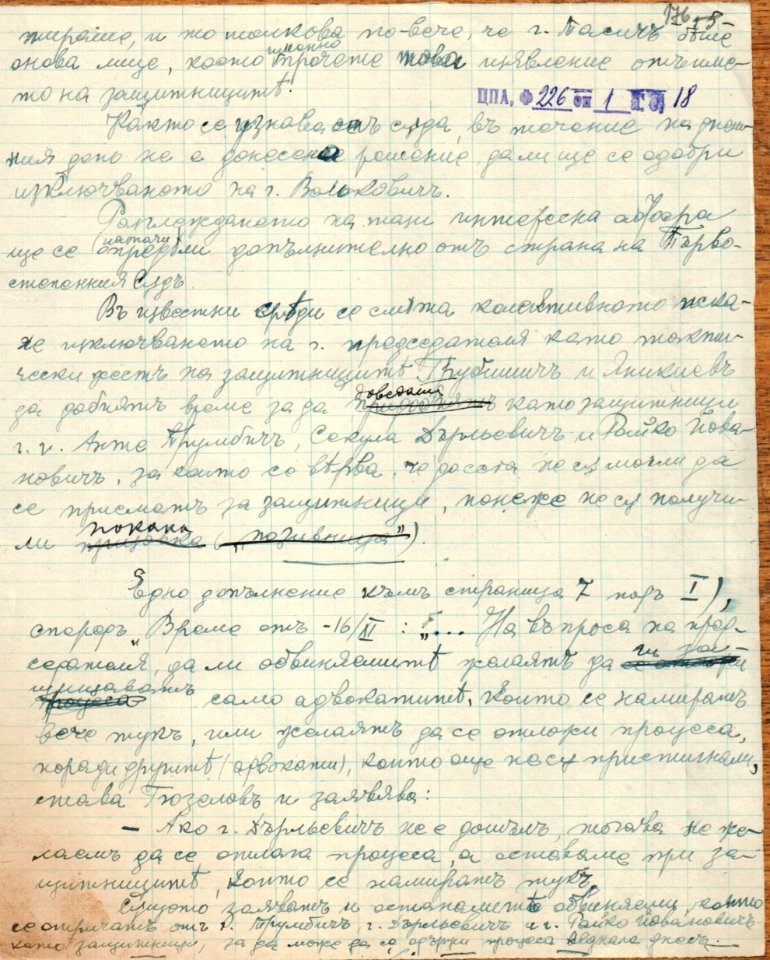 176 - 8 -
тираше, и то толкова по-вече, че г. Тасичъ бѣше
онова лице, което именно прочете това изявление отъ име-
то на защитницитѣ.
ЦПА, Ф 226 оп 1 18
Както се узнава отъ съда, въ течение на днеш-
ния день не е донесено решение, дали ще се одобри
изключването на г. Вольковичъ.
Разглеждането на тази интересна афера
ще се опредѣли допълнително отъ страна на Първо-
степенния съдъ.
Въ известни срѣди се смѣта колективното иска-
не изключването на г. председателя като такти-
чески жестъ на защитницитѣ Трубишичъ и Яникиевъ
за добиятъ време за да като защитници
г. г. Анте Трумбичъ, Секула Дърльевичъ и Райко Йова-
новичъ, за които се вѣрва, че досега не сѫ могли да
се приематъ за защитници, понеже не сѫ получи-
ли покана призовка („позивница“).
Едно допълнение къмъ страница 7 подъ I),
споредъ „Време отъ -16/XI : „... На въпроса на пред-
седателя, да ли обвиняемитѣ желаятъ да ги
процеса само адвокатитѣ, които се намиратъ
вече тукъ, или желаятъ да се отложи процеса,
поради другитѣ (адвокати), които още не сѫ пристигнали,
става Гюзеловъ и заявява:
— Ако г. Дърльевичъ не е дошълъ, тогава не же-
лаемъ да се отлага процеса, а оставаме при за-
щитницитѣ, които се намиратъ тукъ.
Същото заявятъ и останалитѣ обвиняеми, които
се отричатъ отъ г. Трумбичъ, г. Дърльевичъ и г. Райко Йовановичъ
като защитници, за да може да се одържи процеса веднага днесъ.